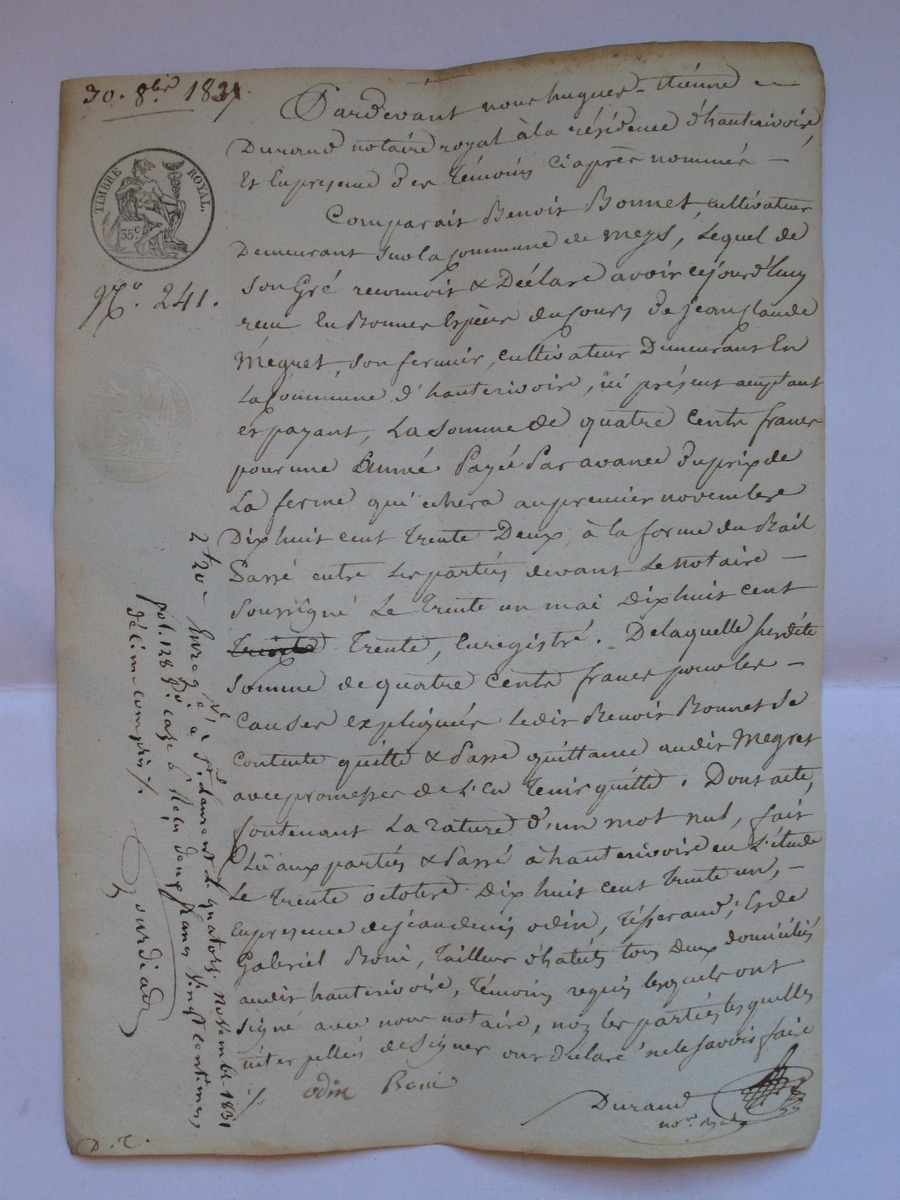 30. 8bre 1831.
TIMBRE ROYAL.
35c
No. 241.
Pardevant nous hugues Etiénne
Durand notaire royal à la résidence d'hauterivoire,
Et Enpresence des témoins ciaprès nommés —
Comparait Benoit Bonnet, cultivateur
Demeurant sur la commune de meys, Lequel de
Son Gré reconnoit & Déclare avoir cejourd'huy
recu En Bonnes Espèces du cours de jeanclaude
Mégret, son fermier, cultivateur Demeurant En
La commune d'hauterivoire, ici présent acceptant
et payant, La somme de quatre Cents francs
pour une année Payée Par avance du prix de
La ferme qui echera au premier novembre
Dix huit cent Trente Deux, à la forme du Bail
Passé entre Les parties devant Le notaire —
Soussigné Le Trente un mai Dix huit cent
Trente, Enregistré. Delaquelle susdite
Somme de quatre Cents francs pour les —
Causes expliquées ledit Benoit Bonnet se
Contente quitte & Passe quittance audit Megret
avec promesses de L'en Tenir quitte. Dont acte,
Contenant La rature d'un mot nul, fait
Lu aux parties & Passé à hauterivoire en L'étude
Le Trente octobre Dix huit cent trente un, —
En presence de jean denis odin, Tisserand, Et de
Gabriel Boni, Tailleur d'habits tous Deux domiciliés
audit hauterivoire, Témoins requis lesquels ont
signé avec nous notaire, non les parties lesquelles
interpellées de signer ont déclaré ne le savoir faire
odin Boni
Durand
nore. Royal
2f 20c Enregé. à St. Laurent le quatorze novembre 1831
fol. 128 Ro. case 6 Reçu deux francs vingt centimes
décime compris
D. T.